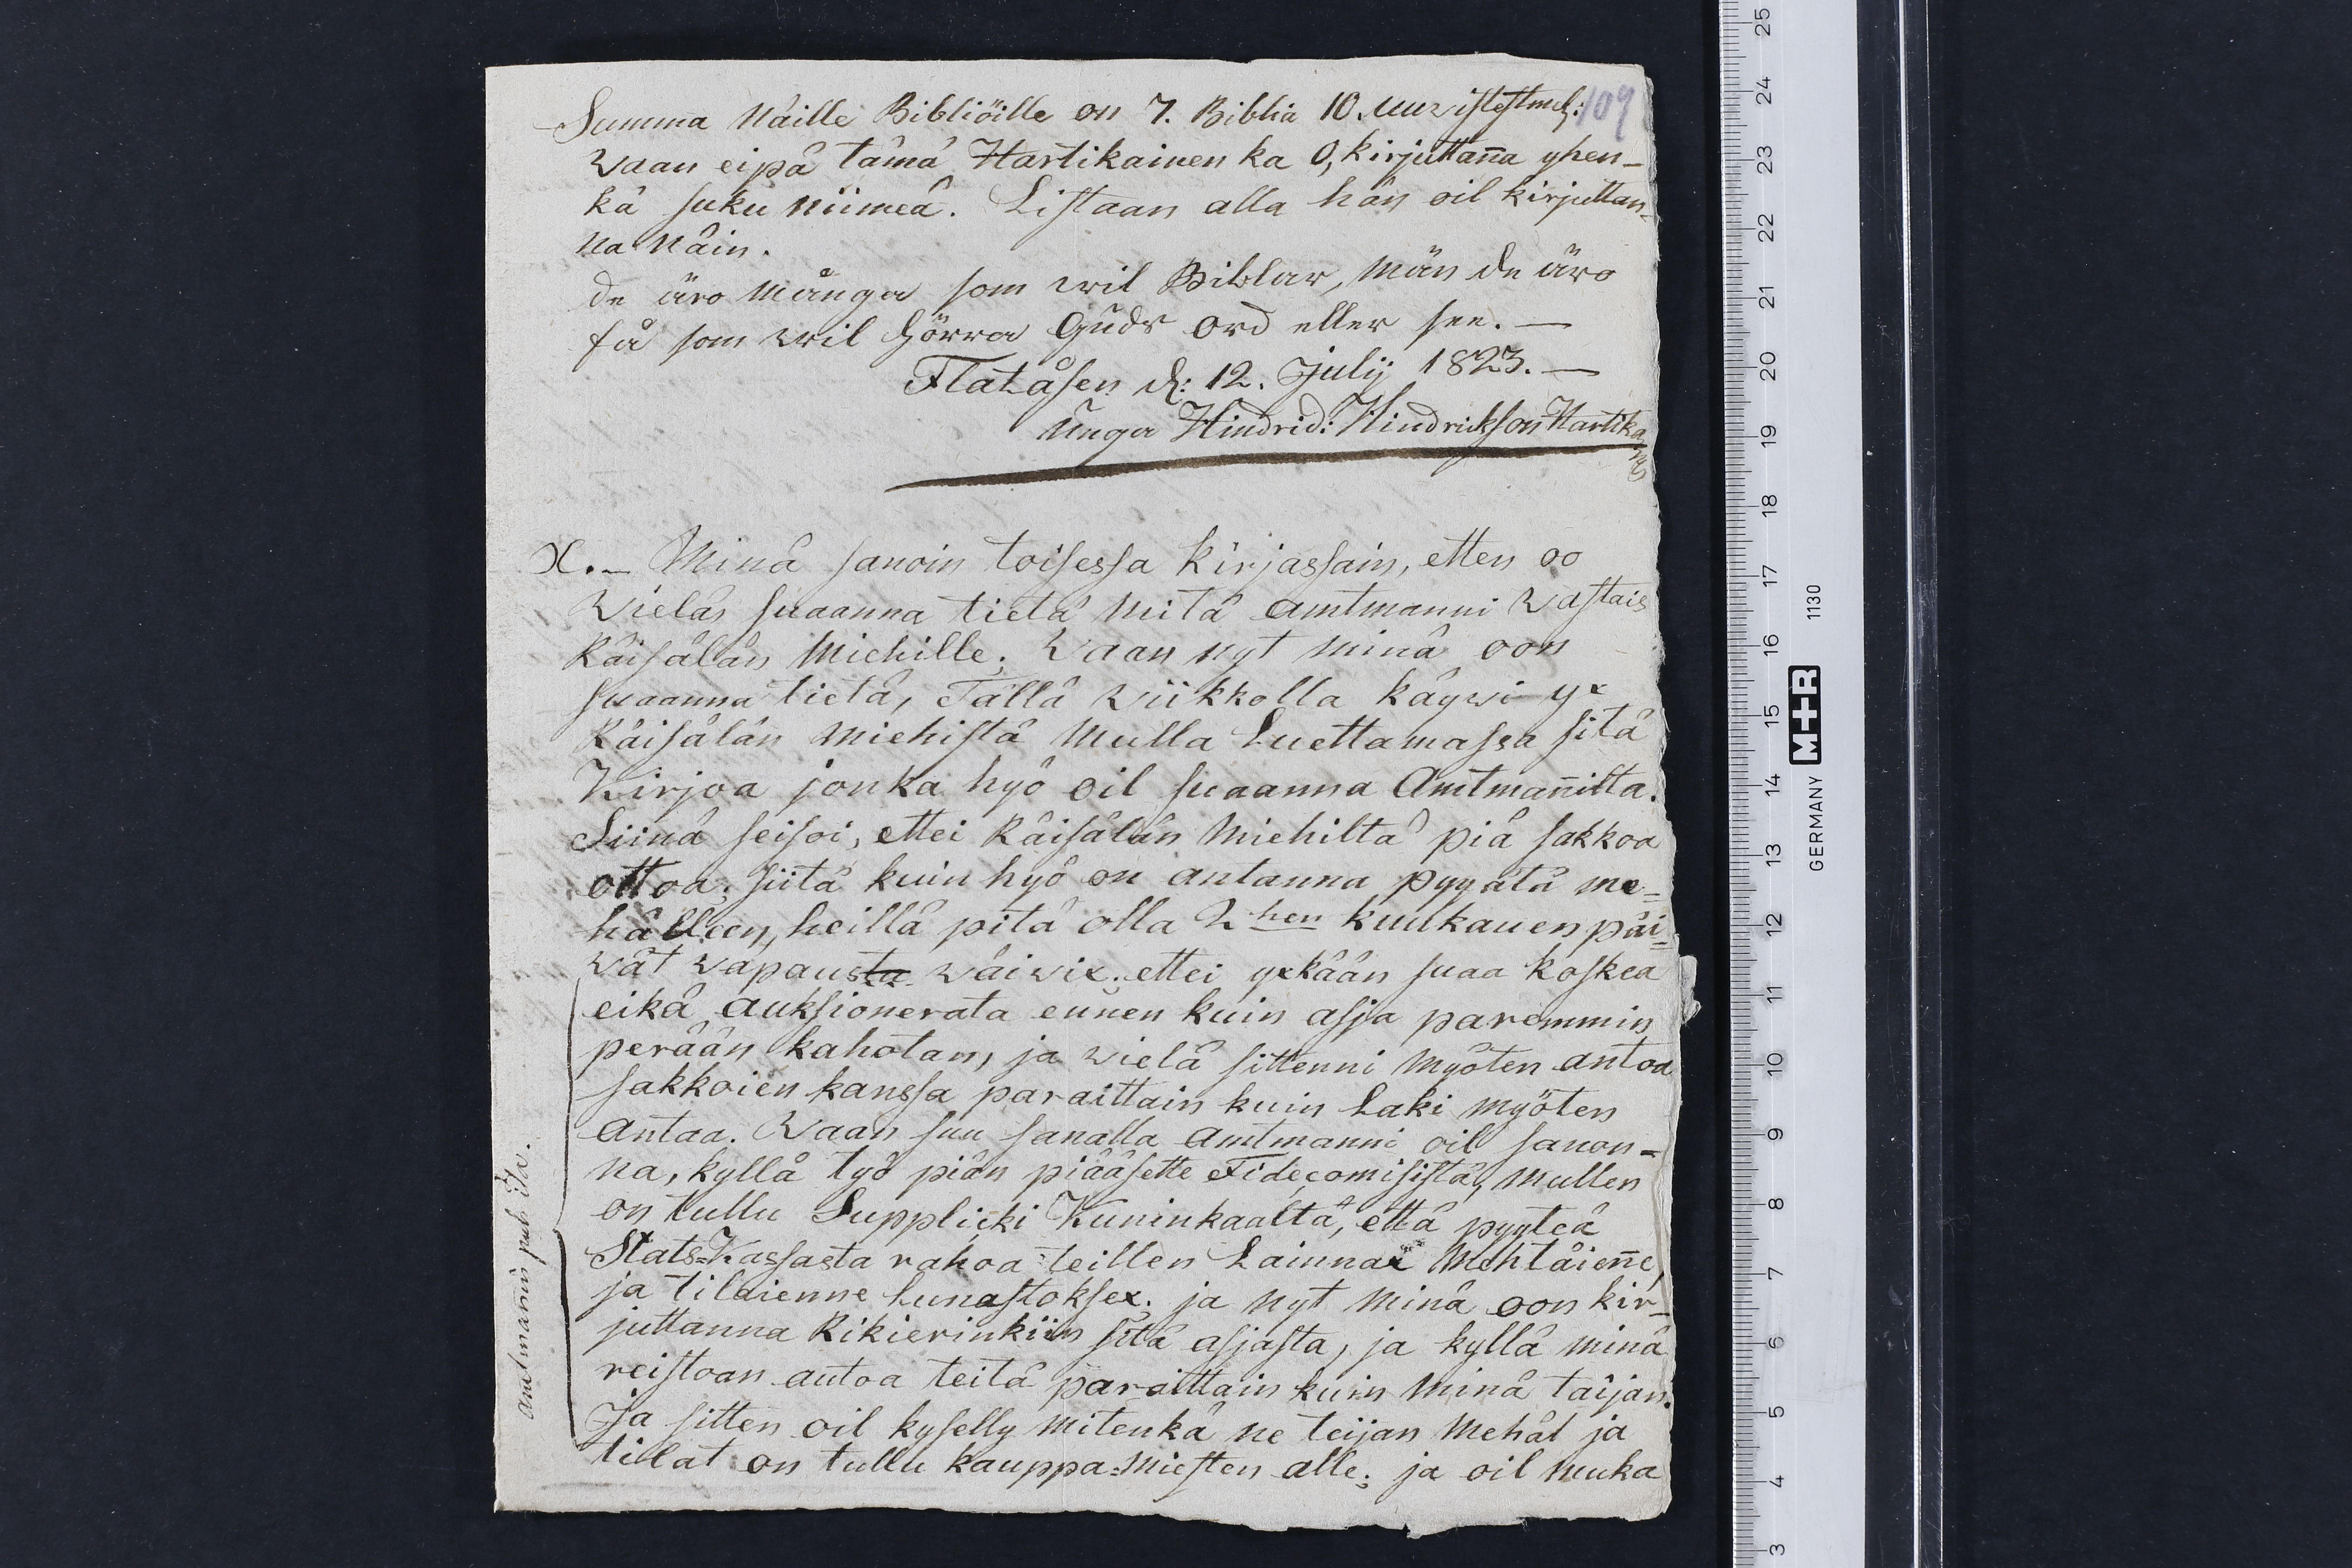 Summa näille Bibliöille on 7. Biblia 10. Uuzistestm:
109
waan eipä tämä Hartikainen ka O, kirjuttan̄a yhen-
kä suku niimeä. Listaan alla hän oil kirjuttan-
na näin.
de äro många som wil Biblar, män de äro
få som wil hörra Guds ord eller see. —
Flatåsen d: 12. Julij 1823. —
Unga Hindrid: Hindrickson Hartika
X. — Minä sanoin toisessa kirjassain, etten oo
wielä suaanna tietä mitä amtmanni wastais
Räisälän Miehille. Waan nyt minä oon
suaanna tietä, Tällä wiikkolla käywi yx
Räisälän miehistä Mulla Luettamassa sitä
Kirjoa jonka hyö oil suaanna Amtman̄ilta.
Siinä seisoi, ettei Räisälän Miehiltä piä sakkoa
ottoa. siitä kuin hyö on antanna pyyätä me-
hälleen, heillä pitä olla 2hen kuukauen päi-
wät wapausta wäiwix. ettei yxkään suaa koskea
eikä auksionerata ennen kuin asja paremmin
perään kahotan, ja wielä sittenni Myöten antoa
sakkoien kanssa paraittain kuin Laki myöten
antaa. Waan suu sanalla Amtmanni oil sanon-
na, kyllä työ piän piääsette Fidecomisistä, mullen
on tullu Supplicki Kuninkaalta, että pyyteä
Stats-Kassasta rahoa teillen Lainnax Mehtäien̄e,
ja tilaienne lunastoksex. ja nyt minä oon kir-
juttanna Rikierinkiin sitä asjasta, ja kyllä minä
reistoan autoa teitä paraittain kuin minä taijan.
Ja sitten oil kyselly mitenkä ne teijan Mehät ja
tillat on tullu kauppa-Miesten alle. ja oil muka
amtmannin puh